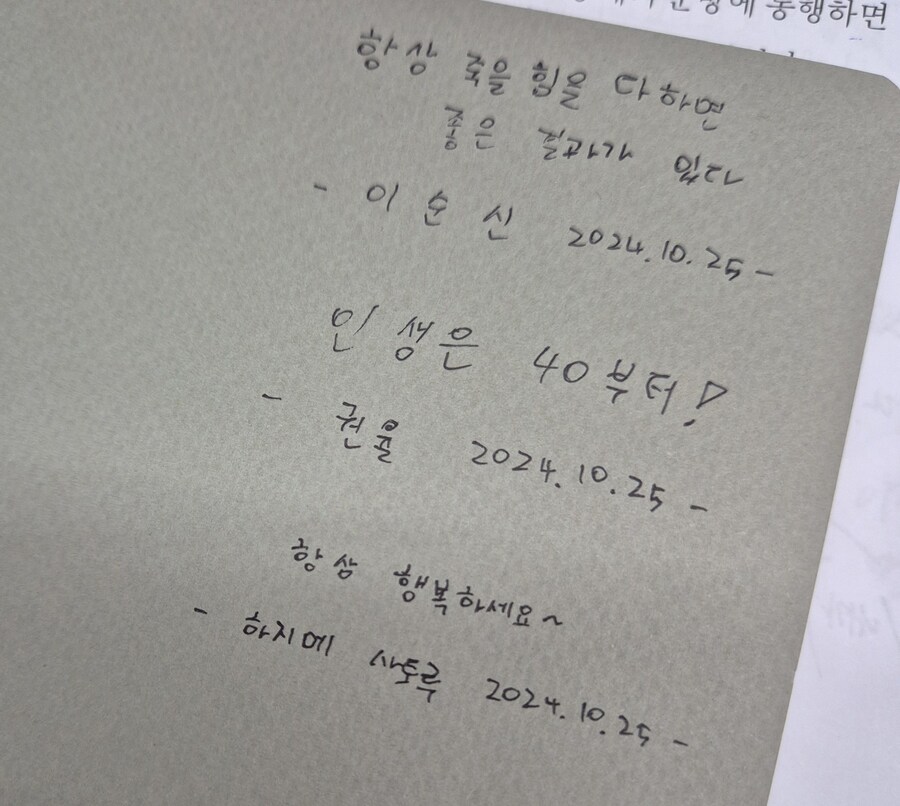 동행하면
항상 죽을 힘을 다하면
좋은 결과가 있다
- 이순신 2024.10.25 -
인생은 40부터!
- 권율 2024.10.25 -
항상 행복하세요~
- 하지메 사토루 2024.10.25 -